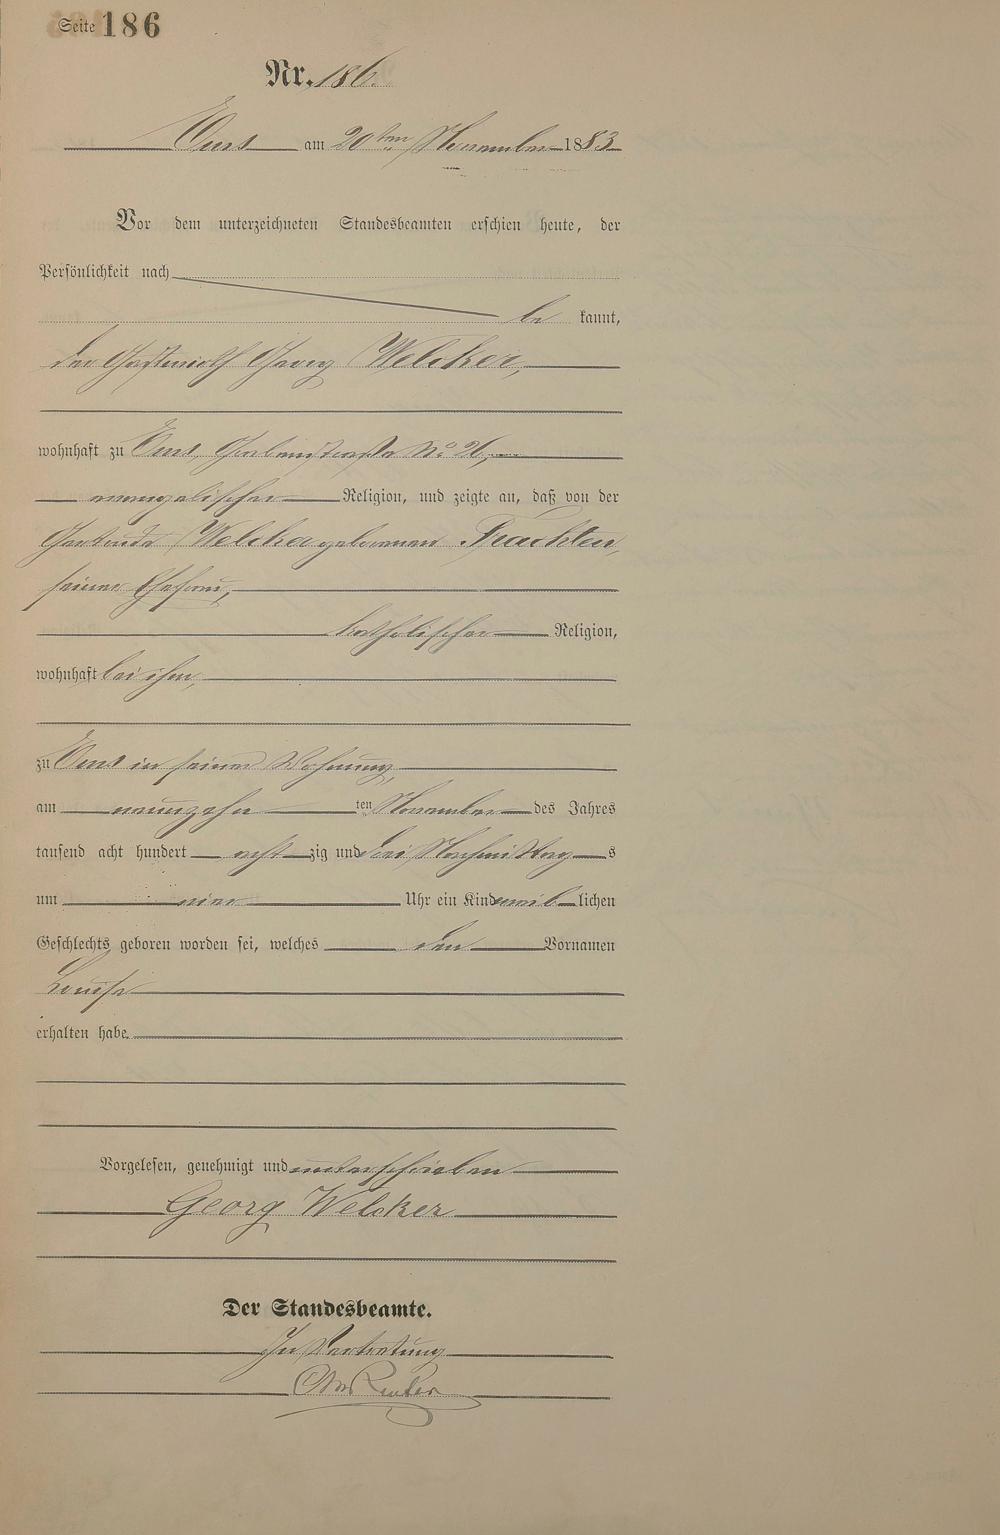 Seite 186
Nr. 186.
Ems am 20ten November 1883
Vor dem unterzeichneten Standesbeamten erschien heute, der
Persönlichkeit nach
be kannt,
der Gastwirth Georg Welcker,
wohnhaft zu Ems, No 26,
evangelischer Religion, und zeigte an, daß von der
Welcker geborenen Trachten,
seiner Ehefrau,
katholischer Religion,
wohnhaft bei ihm,
zu Ems in seiner Wohnung,
am neunzehn ten November des Jahres
tausend acht hundert acht zig und drei Nachmittag s
um vier Uhr ein Kind weib lichen
Geschlechts geboren worden sei, welches den Vornamen
Louise
erhalten habe.
Vorgelesen, genehmigt und unterschrieben
Georg Welcker
Der Standesbeamte.
In Vertretung
Reuter